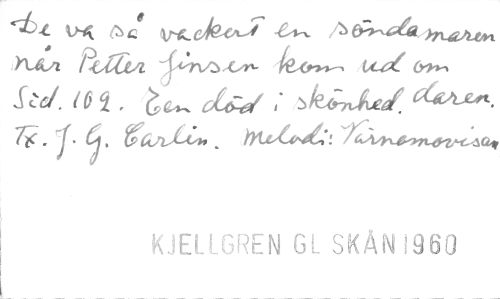 De va så vackert en söndamaren
når Petter Jinsen kom ud om
daren.
Sid. 102. Een död i skönhed.
Tx. J. G. Carlin. Melodi: Värnamovisan
KJELLGREN GL SKÅN 1960